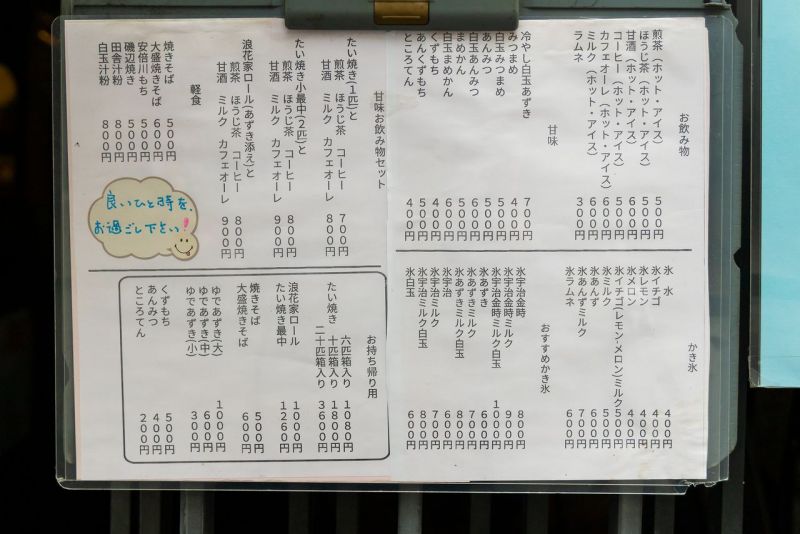 お飲み物
煎茶（ホット・アイス） ５００円
ほうじ茶（ホット・アイス） ５００円
甘酒（ホット・アイス） ５００円
コーヒー（ホット・アイス） ５００円
カフェオーレ（ホット・アイス） ６００円
ミルク（ホット・アイス） ５００円
ラムネ ３００円
甘味
冷やし白玉あずき ７００円
みつまめ ４００円
白玉みつまめ ５００円
あんみつ ５００円
白玉あんみつ ６００円
まめかん ５００円
白玉まめかん ６００円
くずもち ４００円
あんくずもち ５００円
ところてん ４００円
かき氷
氷水 ４００円
氷イチゴ ４００円
氷レモン ４００円
氷メロン ４００円
氷イチゴ(レモン・メロン)ミルク ５００円
氷ミルク ５００円
氷あんず ６００円
氷あんずミルク ７００円
氷ラムネ ６００円
おすすめかき氷
氷宇治金時 ８００円
氷宇治金時ミルク ９００円
氷宇治金時ミルク白玉 １０００円
氷あずき ６００円
氷あずきミルク ７００円
氷あずきミルク白玉 ８００円
氷宇治 ６００円
氷宇治ミルク ７００円
氷宇治ミルク白玉 ８００円
氷白玉 ６００円
甘味お飲み物セット
たい焼き(１匹)と
煎茶 ほうじ茶 コーヒー ７００円
甘酒 ミルク カフェオーレ ８００円
たい焼き小最中(２匹)と
煎茶 ほうじ茶 コーヒー ８００円
甘酒 ミルク カフェオーレ ９００円
浪花家ロール(あずき添え)と
煎茶 ほうじ茶 コーヒー ８００円
甘酒 ミルク カフェオーレ ９００円
軽食
焼きそば ５００円
大盛焼きそば ６００円
磯辺焼き ５００円
安倍川もち ５００円
田舎汁粉 ８００円
白玉汁粉 ８００円
良いひと時を、
お過ごし下さい!
お持ち帰り用
たい焼き 六匹箱入り １０８０円
十匹箱入り １８００円
二十匹箱入り ３６００円
浪花家ロール １０００円
たい焼き最中 １２６０円
焼きそば ５００円
大盛焼きそば ６００円
ゆであずき(大) １０００円
ゆであずき(中) ６００円
ゆであずき(小) ３００円
くずもち ５００円
あんみつ ４００円
ところてん ２００円